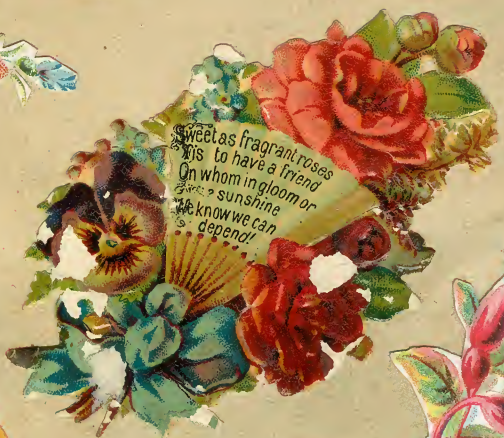 Sweet as fragrant roses
Tis to have a friend
On whom in gloom or
sunshine
We know we can
depend!